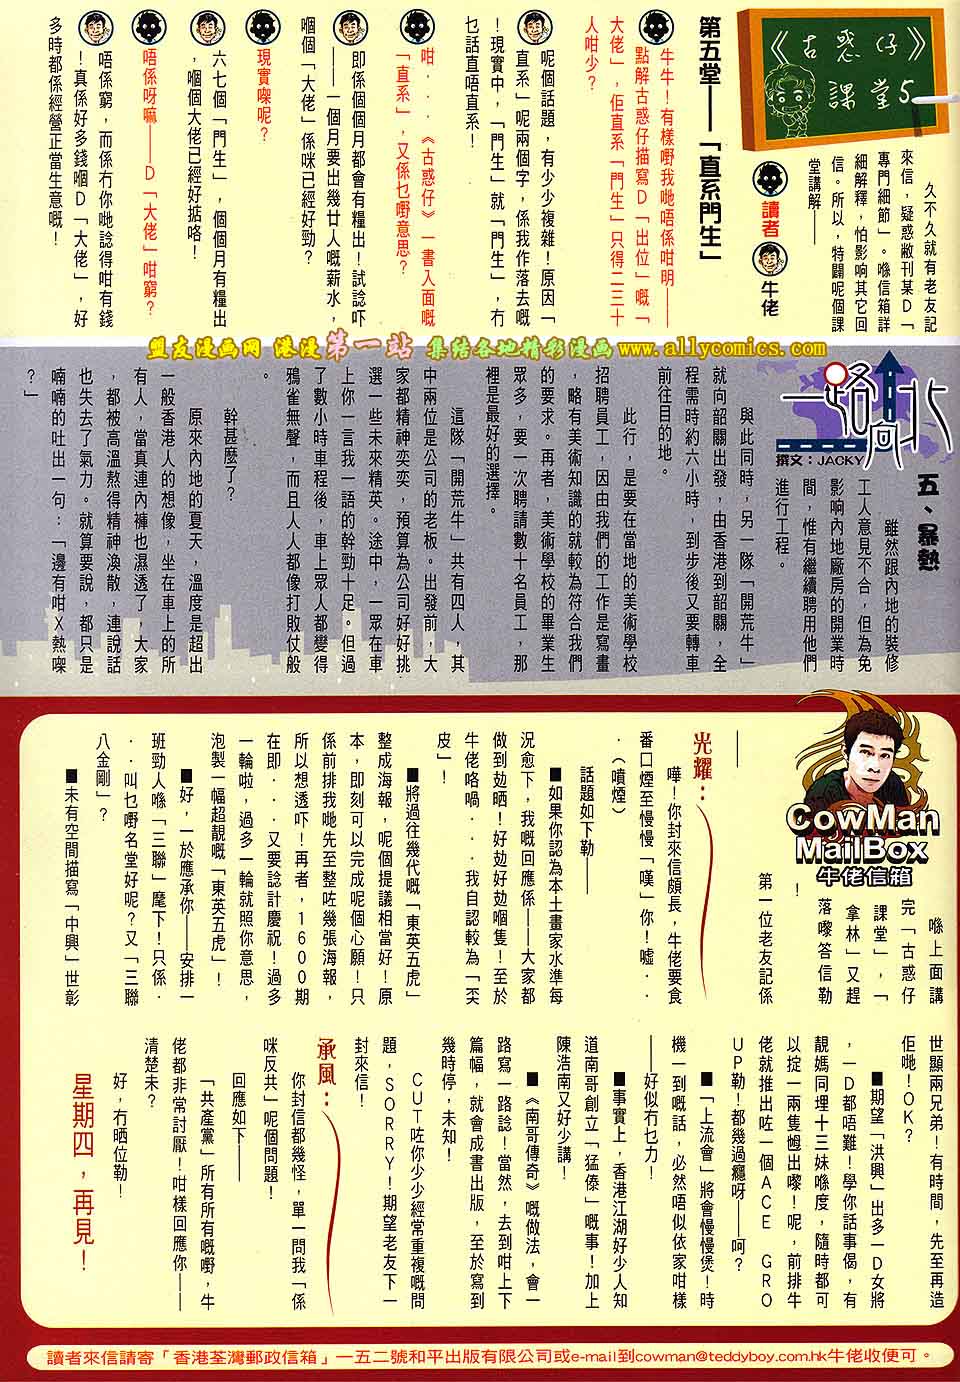 《古惑仔》
課堂5
久不久就有老友記
來信，疑惑敝刊某D「
專門細節」。喺信箱詳
細解釋，怕影响其它回
信。所以，特闢呢個課
堂講解——
讀者
牛佬
第五堂——「直系門生」
牛牛！有樣嘢我哋唔係咁明——
點解古惑仔描寫D「出位」嘅「
大佬」，佢直系「門生」只得二三十
人咁少？
呢個話題，有少少複雜！原因「
直系」呢兩個字，係我作落去嘅
！現實中，「門生」就「門生」，冇
乜話直唔直系！
咁．．．《古惑仔》一書入面嘅
「直系」，又係乜嘢意思？
即係個個月都會有糧出！試諗吓
——一個月要出幾廿人嘅薪水，
嗰個「大佬」係咪已經好勁？
現實㗎呢？
六七個「門生」，個個月有糧出
，嗰個大佬已經好掂咯！
唔係呀嘛——D「大佬」咁窮？
唔係窮，而係冇你哋諗得咁有錢
！真係好多錢嗰D「大佬」，好
多時都係經營正當生意嘅！
盟友漫画网 港漫第一站 集结各地精彩漫画 www.allycomics.com
一路向北
撰文：JACKY
五、暴熱
雖然跟內地的裝修
工人意見不合，但為免
影响內地廠房的開業時
間，惟有繼續聘用他們
進行工程。
與此同時，另一隊「開荒牛」
就向韶關出發，由香港到韶關，全
程需時約六小時，到步後又要轉車
前往目的地。
此行，是要在當地的美術學校
招聘員工，因由我們的工作是寫畫
，略有美術知識的就較為符合我們
的要求。再者，美術學校的畢業生
眾多，要一次聘請數十名員工，那
裡是最好的選擇。
這隊「開荒牛」共有四人，其
中兩位是公司的老板。出發前，大
家都精神奕奕，預算為公司好好挑
選一些未來精英。途中，一眾在車
上你一言我一語的幹勁十足。但過
了數小時車程後，車上眾人都變得
鴉雀無聲，而且人人都像打敗仗般
。
幹甚麼了？
原來內地的夏天，溫度是超出
一般香港人的想像，坐在車上的所
有人，當真連內褲也濕透了，大家
，都被高溫熬得精神渙散，連說話
也失去了氣力。就算要說，都只是
喃喃的吐出一句：「邊有咁X熱㗎
？」
CowMan
MailBox
牛佬信箱
喺上面講
完「古惑仔
課堂」，「
拿林」又趕
落嚟答信勒
！
第一位老友記係
——
光耀：
嘩！你封來信頗長，牛佬要食
番口煙至慢慢「嘆」你！噓．．
．（噴煙）
話題如下勒——
■如果你認為本土畫家水準每
況愈下，我嘅回應係——大家都
做到攰晒！好攰好攰嗰隻！至於
牛佬咯喎．．．我自認較為「䒐
皮」！
■將過往幾代嘅「東英五虎」
整成海報，呢個提議相當好！原
本，即刻可以完成呢個心願！只
係前排我哋先至整咗幾張海報，
所以想透吓！再者，1600期
在即．．．又要諗計慶祝！過多
一輪啦，過多一輪就照你意思，
泡製一幅超靚嘅「東英五虎」！
■好，一於應承你——安排一
班勁人喺「三聯」麾下！只係．
．．叫乜嘢名堂好呢？又「三聯
八金剛」？
■未有空間描寫「中興」世彰
世顯兩兄弟！有時間，先至再造
佢哋！OK？
■期望「洪興」出多一D女將
，一D都唔難！學你話事偈，有
靚媽同埋十三妹喺度，隨時都可
以掟一兩隻乸出嚟！呢，前排牛
佬就推出咗一個ACE GRO
UP勒！都幾過癮呀——呵？
■「上流會」將會慢慢煲！時
機一到嘅話，必然唔似依家咁樣
——好似冇乜力！
■事實上，香港江湖好少人知
道南哥創立「猛傣」嘅事！加上
陳浩南又好少講！
■《南哥傳奇》嘅做法，會一
路寫一路諗！當然，去到咁上下
篇幅，就會成書出版，至於寫到
幾時停，未知！
CUT咗你少少經常重複嘅問
題，SORRY！期望老友下一
封來信！
承風：
你封信都幾怪，單一問我「係
咪反共」呢個問題！
回應如下——
「共產黨」所有所有嘅嘢，牛
佬都非常討厭！咁樣回應你——
清楚未？
好，冇晒位勒！
星期四，再見！
讀者來信請寄「香港荃灣郵政信箱」一五二號和平出版有限公司或e-mail到cowman@teddyboy.com.hk牛佬收便可。